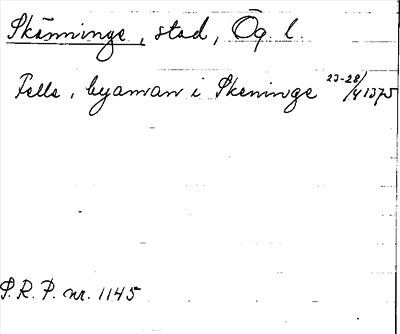 Skänninge, stad, Ög. l.
Felle, byaman i Skeninge 23-28/4 1375
P.R.P. nr. 1145